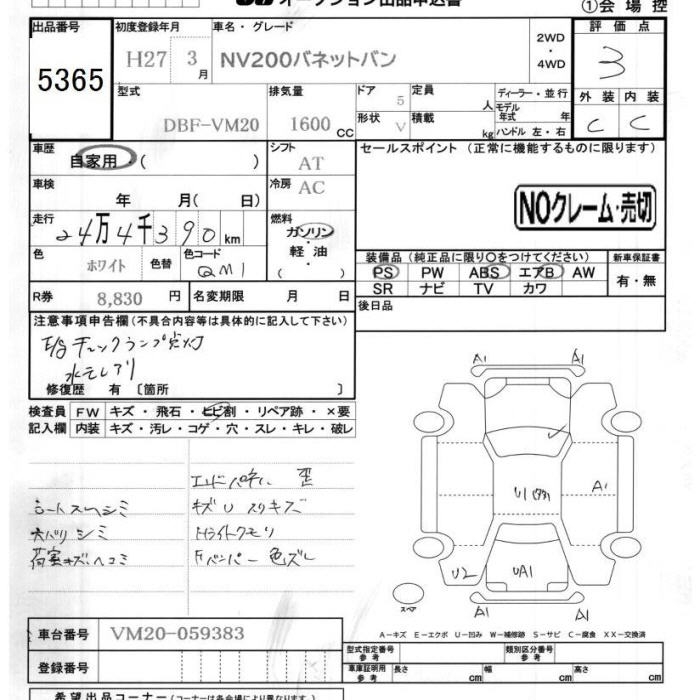 オークション出品申込書
①会場控
出品番号
5365
初度登録年月
H27 3月
車名・グレード
NV200バネットバン
2WD
・
4WD
評価点
3
型式
DBF-VM20
排気量
1600 CC
ドア
5
形状
V
定員
人
積載
kg
ディーラー・並行
モデル年式 年
ハンドル 左・右
外装 内装
C C
車歴
自家用・( )
シフト
AT
セールスポイント (正常に機能するものに限ります)
車検
年 月( 日)
冷房
AC
NOクレーム・売切
走行
24万4千390km
燃料
ガソリン
・
軽油
・
色
ホワイト
色替
色コード
QM1
装備品(純正品に限り○をつけてください)
新車保証書
PS PW ABS エアB AW
SR ナビ TV カワ
有・無
R券
8,830 円
名変期限 月 日
後日品
注意事項申告欄(不具合内容等は具体的に記入して下さい)
E/gチェックランプ点灯
水モレアリ
修復歴 有〔箇所 〕
検査員 FW キズ・飛石・ヒビ割・リペア跡・×要
記入欄 内装 キズ・汚レ・コゲ・穴・スレ・キレ・破レ
エンドパネル 歪
シートスレシミ
キズU スリキズ
天バリシミ
ライトクモリ
荷室キズヘコミ
Fバンパー色ズレ
A1 A1
A1
U2
UA1
A1 A1
スペア
A-キズ E-エクボ U-凹み W-補修跡 S-サビ C-腐食 XX-交換済
車台番号
VM20-059383
型式指定番号
参考
類別区分番号
参考
登録番号
車庫証明用
参考
長さ cm 幅 cm 高さ cm
希望出品コーナー(コーナーは各会場により異なります)